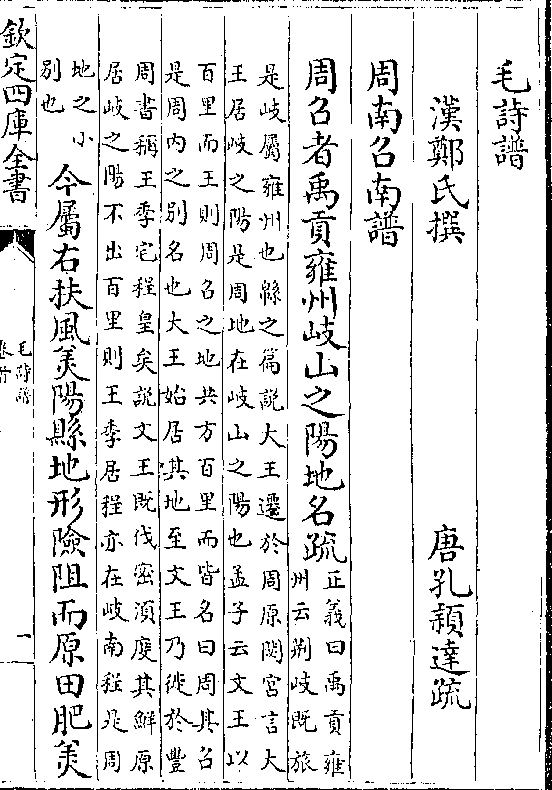 毛詩譜
漢鄭氏撰 唐孔穎達疏
周南召南譜
周召者禹貢雍州岐山之陽地名疏
正義曰禹貢雍
州云荆岐既旅
是岐屬雍州也緜之篇說大王遷於周原閟宫言大
王居岐之陽是周地在岐山之陽也孟子云文王以
百里而王則周召之地共方百里而皆名曰周其召
是周内之别名也大王始居其地至文王乃徙於豐
周書稱王季宅程皇矣說文王既伐密須度其鮮原
居岐之陽不出百里則王季居程亦在岐南程是周
地之小
别也
今屬右扶風美陽縣地形險阻而原田肥美
欽定四庫全書
毛詩譜
一